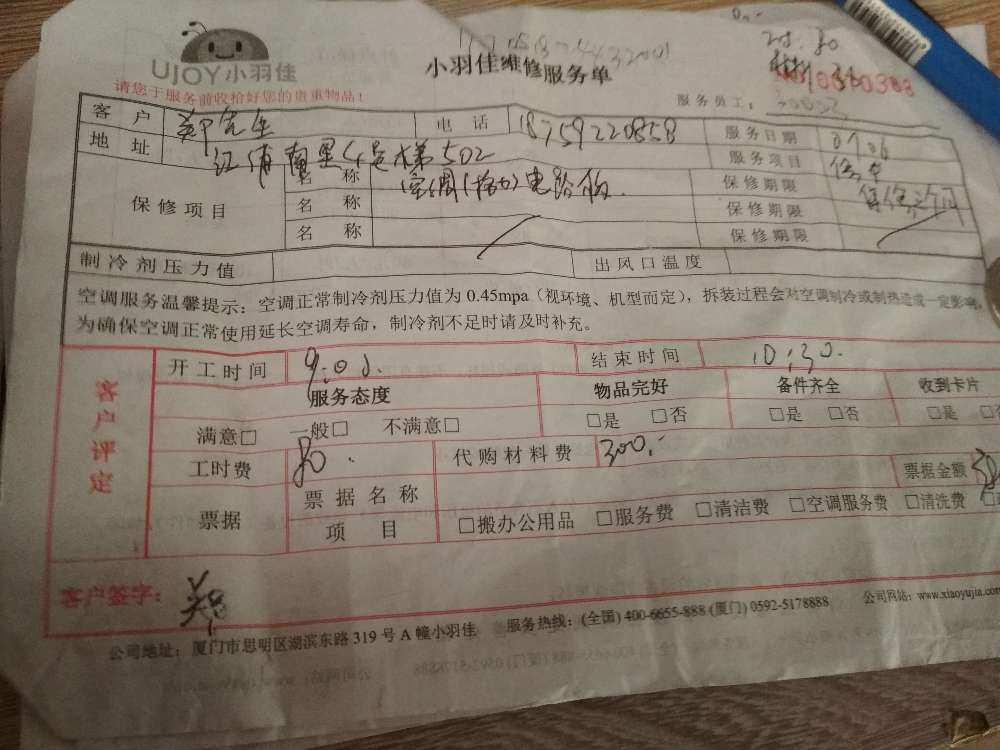 UJOY小羽佳
小羽佳维修服务单
请您于服务前收拾好您的贵重物品！
服务员工：
客户 郑先生 电话 18759220858 服务日期 0706
地址 江浦南里4号梯502 服务项目
保修项目 名称 空调(格力)电路板 保修期限
名称 保修期限
名称 保修期限
制冷剂压力值 出风口温度
空调服务温馨提示：空调正常制冷剂压力值为0.45mpa（视环境、机型而定），拆装过程会对空调制冷或制热造成一定影响，
为确保空调正常使用延长空调寿命，制冷剂不足时请及时补充。
客户评定
开工时间 9:00. 结束时间 10:30.
服务态度 物品完好 备件齐全 收到卡片
满意□ 一般□ 不满意□ □是 □否 □是 □否 □是
工时费 80. 代购材料费 300.-
票据 票据名称 票据金额
项目 □搬办公用品 □服务费 □清洁费 □空调服务费 □清洗费
客户签字： 郑
公司地址：厦门市思明区湖滨东路319号A幢小羽佳 服务热线：(全国) 400-6655-888 (厦门) 0592-5178888 公司网站：www.xiaoyujia.com